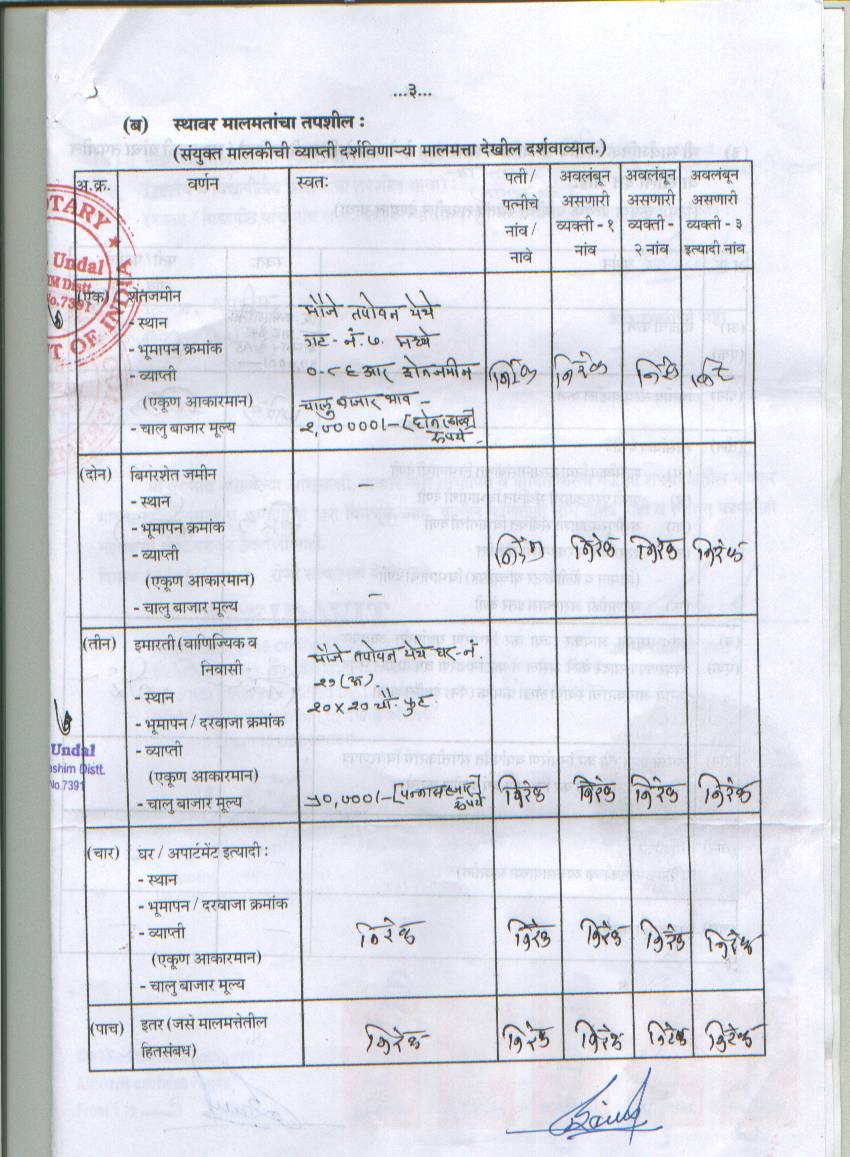 ...३...
(ब) स्थावर मालमतांचा तपशील :
(संयुक्त मालकीची व्याप्ती दर्शविणाऱ्या मालमत्ता देखील दर्शवाव्यात.)
अ.क्र. वर्णन स्वतः पती / पत्नीचे नांव / नावे अवलंबून असणारी व्यक्ती - १ नांव अवलंबून असणारी व्यक्ती - २ नांव अवलंबून असणारी व्यक्ती - ३ इत्यादी नांव
(एक) शेतजमीन
- स्थान मौजे तपोवन येथे
- भूमापन क्रमांक गट - नं. ७. मध्ये
- व्याप्ती ०-८६ आर शेतजमीन निरंक निरंक निरंक
(एकूण आकारमान) चालु बाजार भाव -
- चालु बाजार मूल्य २,०००००/- [दोन लाख रुपये
(दोन) बिगरशेत जमीन -
- स्थान
- भूमापन क्रमांक
- व्याप्ती निरंक निरंक निरंक निरंक
(एकूण आकारमान)
- चालु बाजार मूल्य -
(तीन) इमारती (वाणिज्यिक व मौजे तपोवन येथे घर - नं.
निवासी २७ (अ)
- स्थान २० x २० चौ. फुट
- भूमापन / दरवाजा क्रमांक
- व्याप्ती
(एकूण आकारमान)
- चालु बाजार मूल्य ५०,०००/- [पन्नास हजार रुपये निरंक निरंक निरंक निरंक
(चार) घर / अपार्टमेंट इत्यादी :
- स्थान
- भूमापन / दरवाजा क्रमांक
- व्याप्ती निरंक निरंक निरंक निरंक निरंक
(एकूण आकारमान)
- चालु बाजार मूल्य
(पाच) इतर (जसे मालमत्तेतील निरंक निरंक निरंक निरंक निरंक
हितसंबध)
OTARY
Undal
M Distt
No.7391
T OF INDIA
Undal
ashim Distt.
No.7391